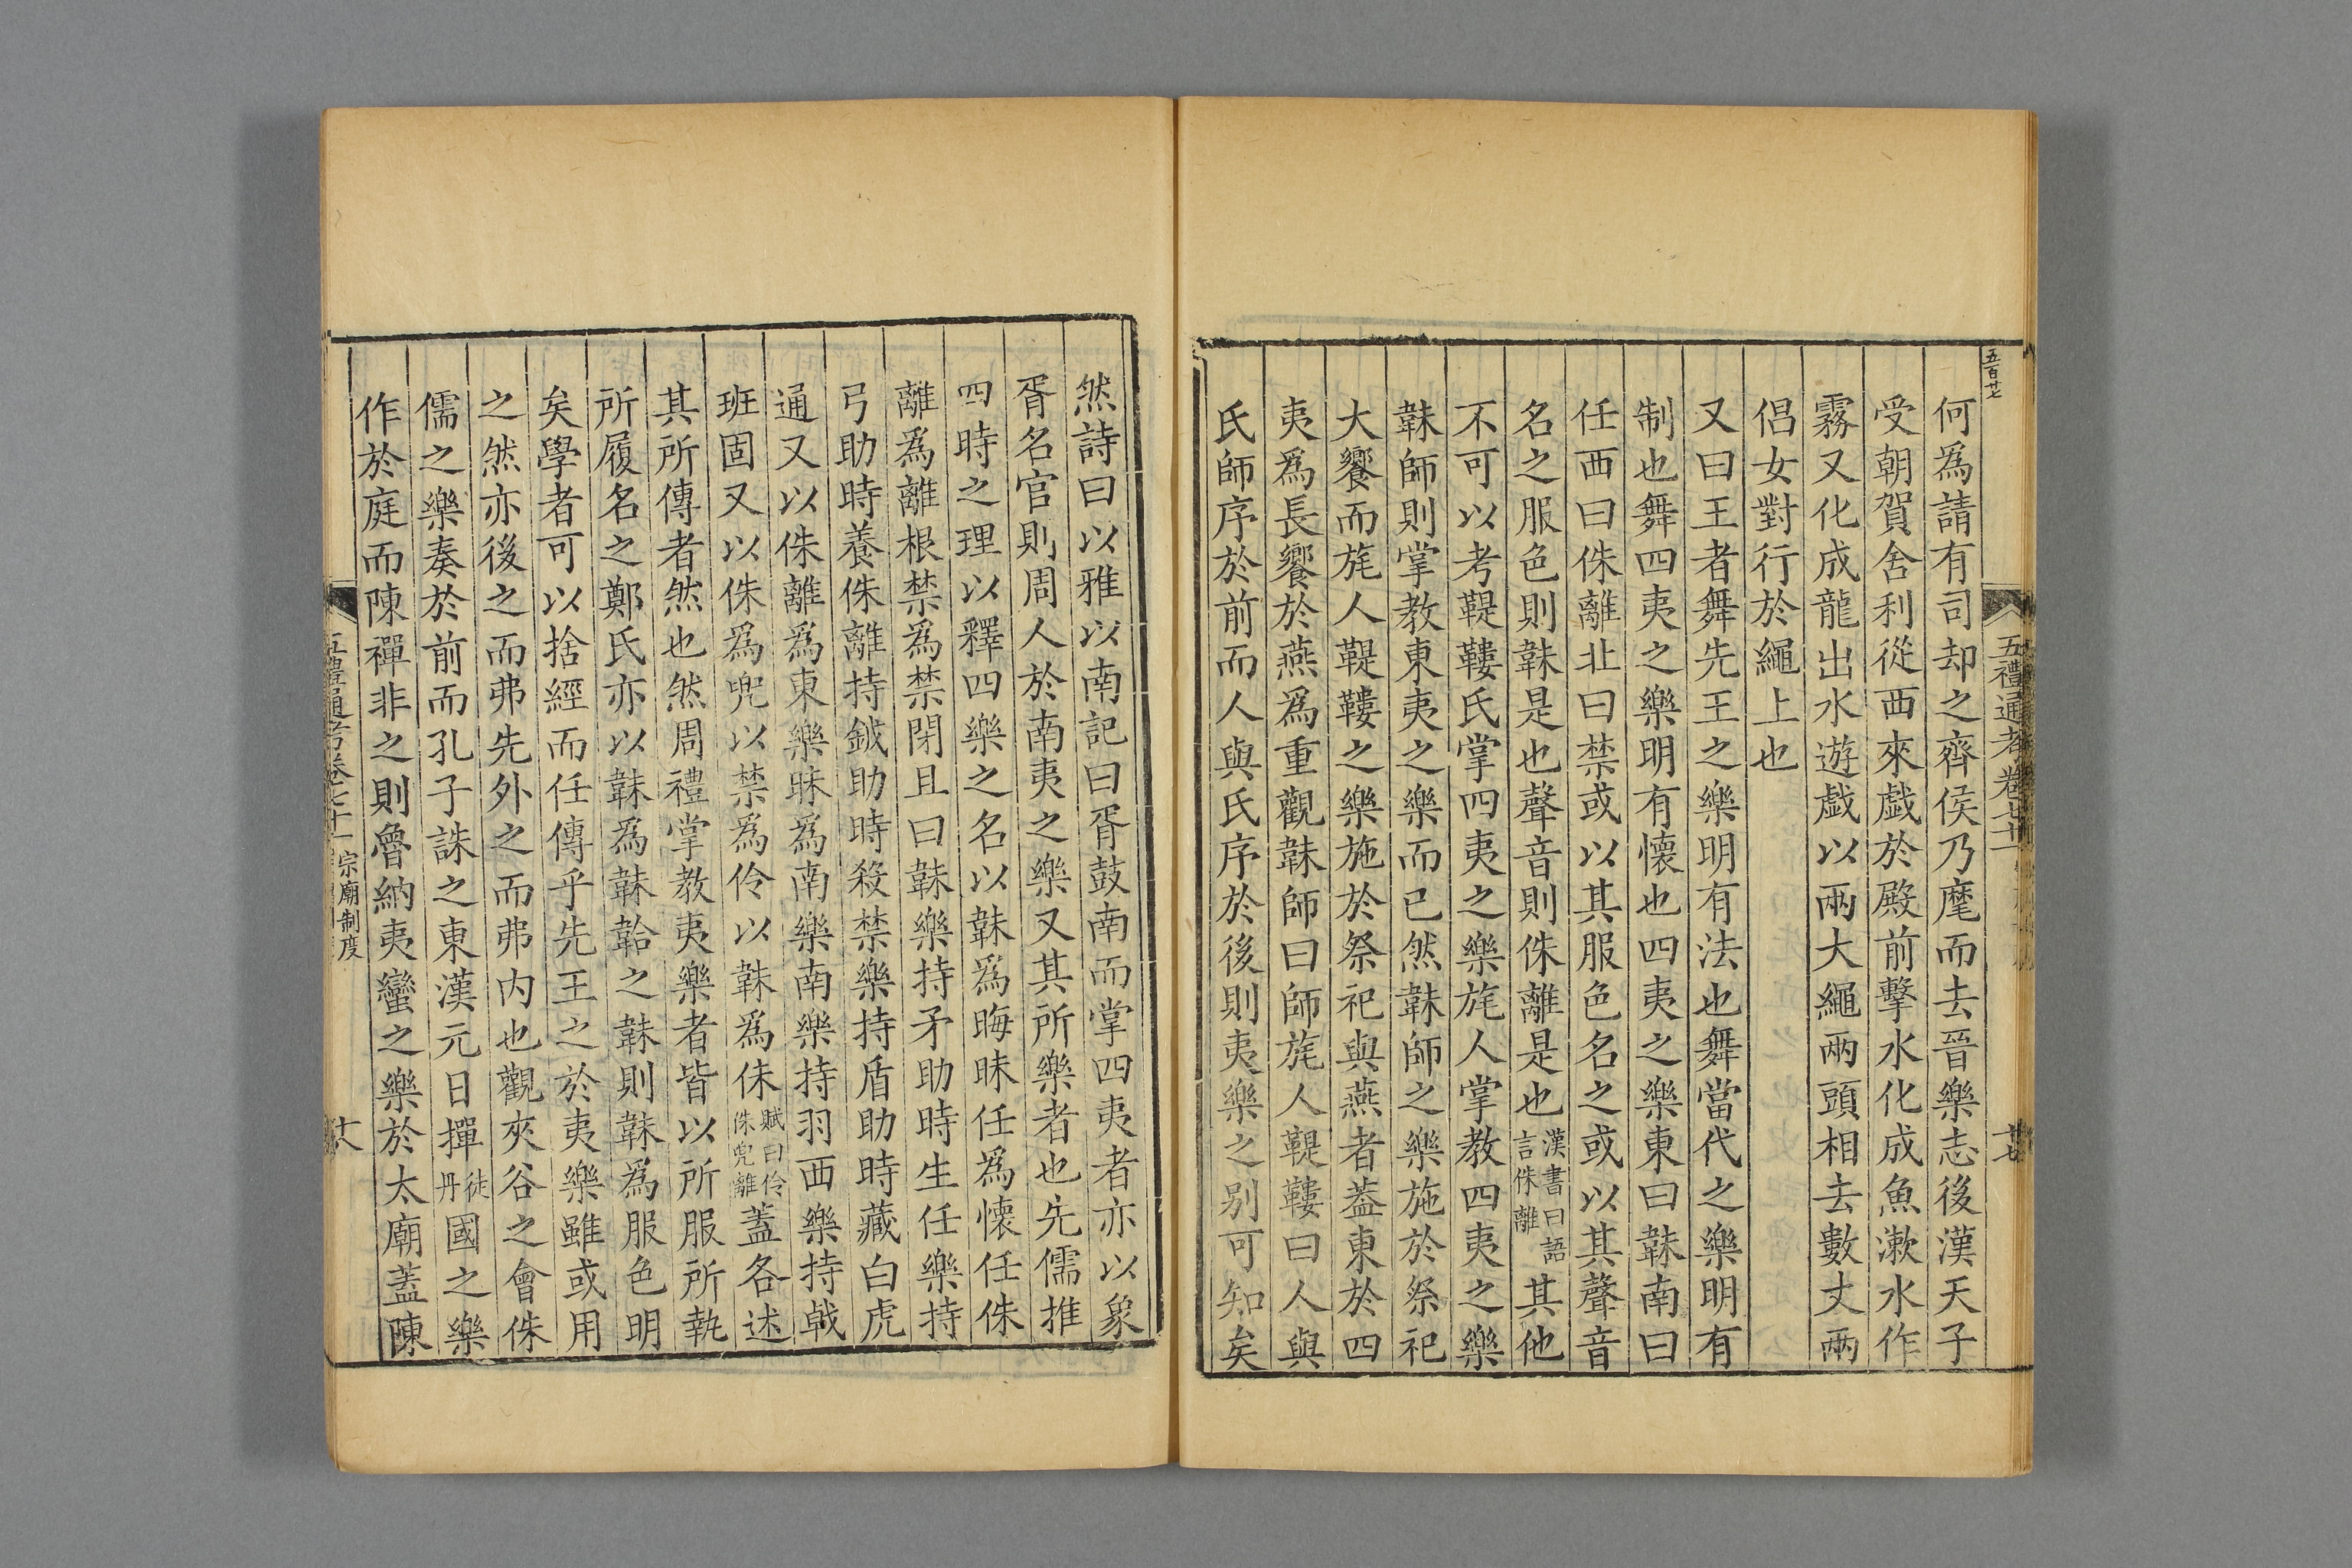 五百廿七
五禮通考卷七十一
廿七
何為請有司却之齊侯乃麾而去晉樂志後漢天子
受朝賀舍利從西來戯於殿前擊水化成魚漱水作
霧又化成龍出水遊戯以兩大繩兩頭相去數丈兩
倡女對行於繩上也
又曰王者舞先王之樂明有法也舞當代之樂明有
制也舞四夷之樂明有懷也四夷之樂東曰韎南曰
任西曰侏離北曰禁或以其服色名之或以其聲音
名之服色則韎是也聲音則侏離是也漢書曰語言侏離其他
不可以考鞮鞻氏掌四夷之樂旄人掌教四夷之樂
韎師則掌教東夷之樂而已然韎師之樂施於祭祀
大饗而旄人鞮鞻之樂施於祭祀與燕者蓋東於四
夷爲長饗於燕爲重觀韎師曰師旄人鞮鞻曰人與
氏師序於前而人與氏序於後則夷樂之别可知矣
然詩曰以雅以南記曰胥鼓南而掌四夷者亦以象
胥名官則周人於南夷之樂又其所樂者也先儒推
四時之理以釋四樂之名以韎爲晦昧任爲懷任侏
離爲離根禁爲禁閉且曰韎樂持矛助時生任樂持
弓助時養侏離持鉞助時殺禁樂持盾助時藏白虎
通又以侏離爲東樂昧爲南樂南樂持羽西樂持戟
班固又以侏爲兜以禁爲伶以韎爲侏賦曰伶侏兜離蓋各述
其所傳者然也然周禮掌教夷樂者皆以所服所執
所履名之鄭氏亦以韎爲韎韐之韎則韎爲服色明
矣學者可以捨經而任傳乎先王之於夷樂雖或用
之然亦後之而弗先外之而弗内也觀夾谷之會侏
儒之樂奏於前而孔子誅之東漢元日撣徒丹國之樂
作於庭而陳禪非之則魯納夷蠻之樂於太廟蓋陳
五禮通考卷七十一
宗廟制度